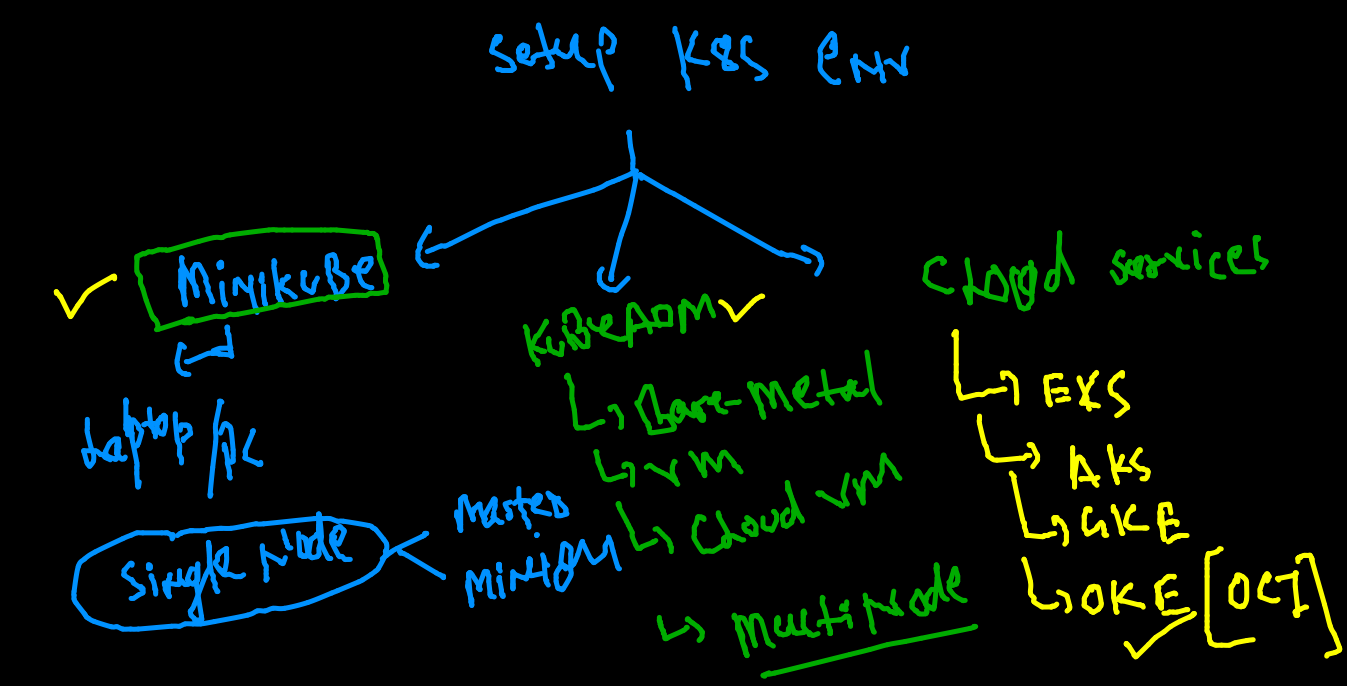 setup K8S env
MiniKuBe
Laptop/pc
Single Node
Master
MINION
KuBeADM
Bare-Metal
VM
Cloud VM
Multi node
Cloud services
EKS
AKS
GKE
OKE [OCI]